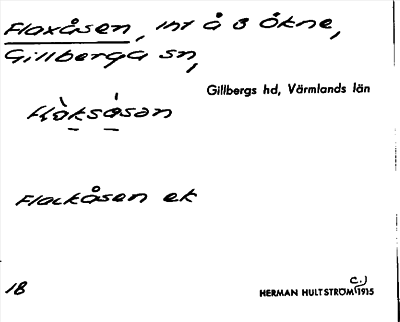 Flaxåsen, int å B Ökne,
Gillberga sn,
Gillbergs hd, Värmlands län
flàksåsən
Flackåsen ek
18
HERMAN HULTSTRÖM (c.) 1915